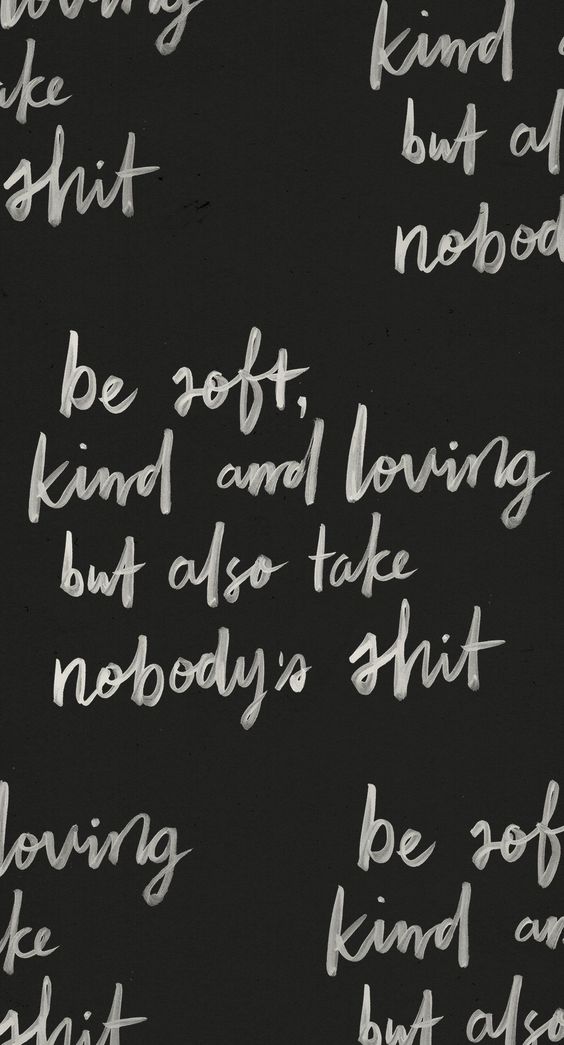 loving
ake
shit
kind
but al
nobod
be soft,
kind and loving
but also take
nobody's shit
loving
ke
shit
be sof
kind an
but also